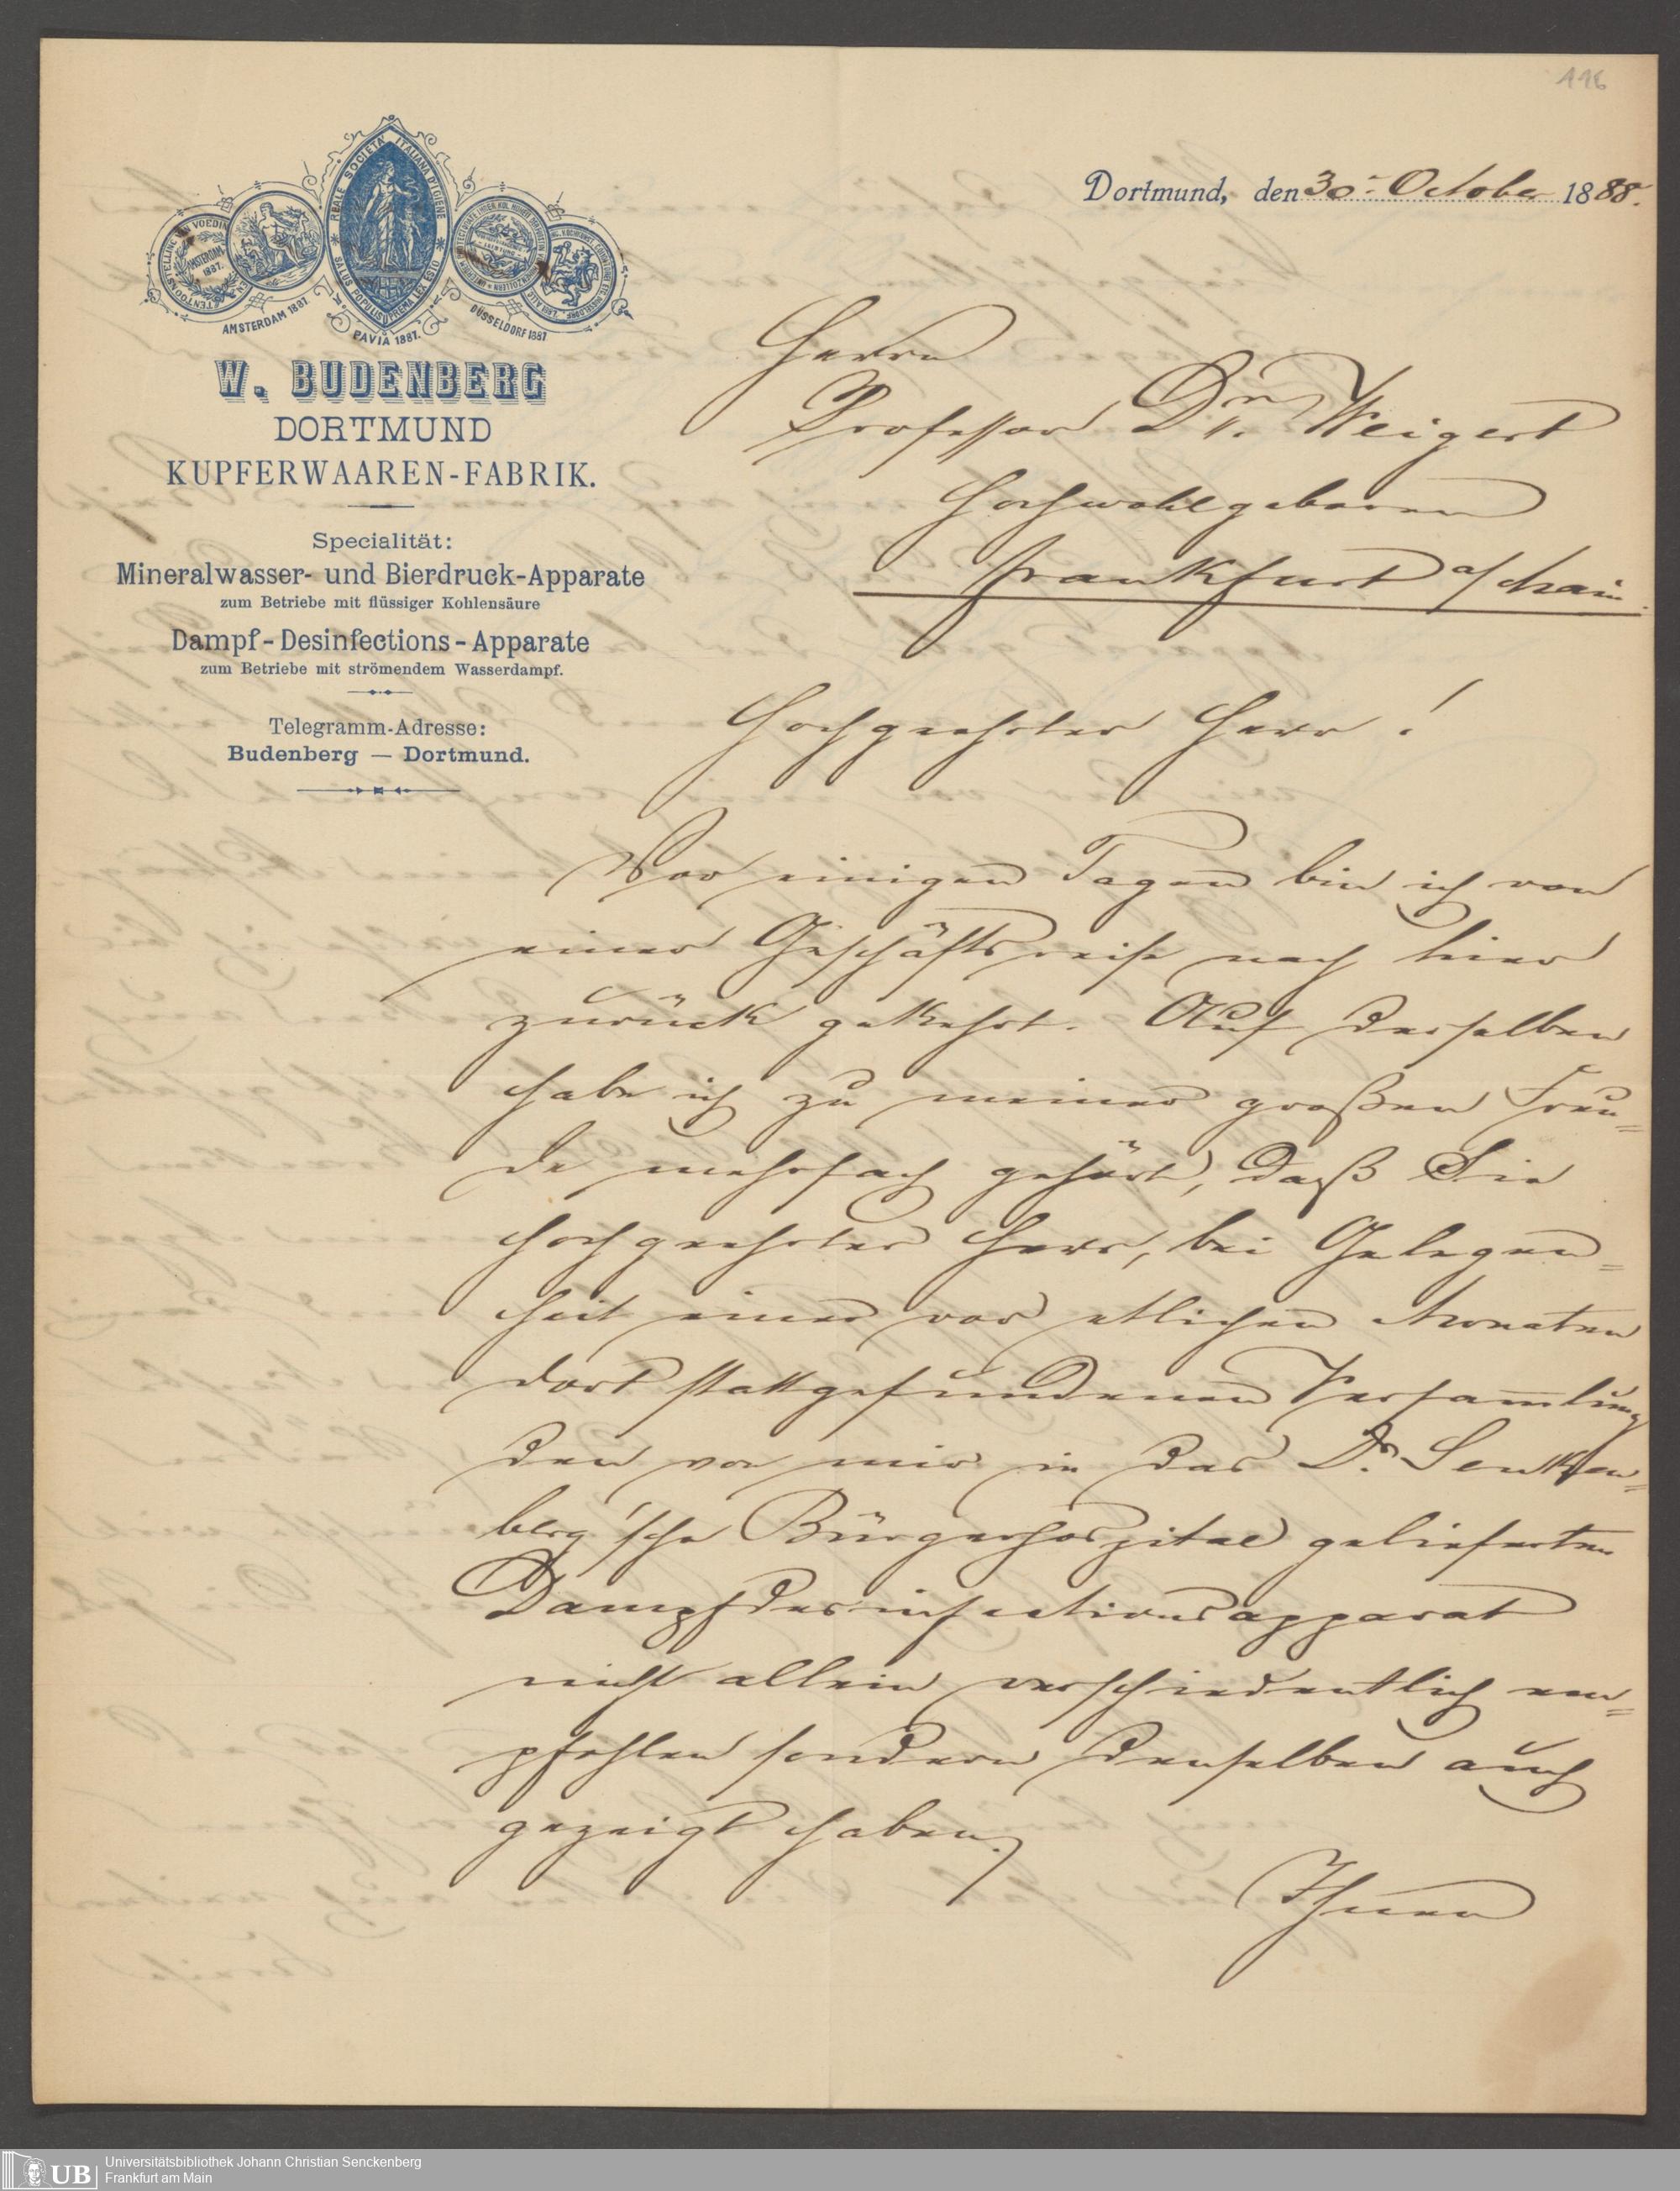 116
REALE SOCIETÀ ITALIANA D'IGIENE
SALUS POPULI SUPREMA LEX ESTO
AMSTERDAM 1887
PAVIA 1887.
DÜSSELDORF 1887
W. BUDENBERG
DORTMUND
KUPFERWAAREN-FABRIK.
Specialität:
Mineralwasser- und Bierdruck-Apparate
zum Betriebe mit flüssiger Kohlensäure
Dampf-Desinfections-Apparate
zum Betriebe mit strömendem Wasserdampf.
Telegramm-Adresse:
Budenberg — Dortmund.
Dortmund, den 30 October 1888.
Herrn
Professor Dr. Weigert
Hochwohlgeboren
Frankfurt a/Main.
Hochgeehrter Herr!
Vor einigen Tagen bin ich von
einer Geschäftsreise nach hier
zurück gekehrt. Auf derselben
habe ich zu meiner großen Freu=
de mehrfach gehört, daß Sie
hochgeehrter Herr, bei Gelegen=
heit einer vor etlichen Monaten
dort stattgefundenen Versam̅lung
den von mir in das Dr. Senken=
berg'sche Bürgerhospital gelieferten
Dampfdesinfectionsapparat
nicht allein verschiedentlich em=
pfohlen sondern denselben auch
gezeigt haben.
Ihnen
UB Universitätsbibliothek Johann Christian Senckenberg
Frankfurt am Main